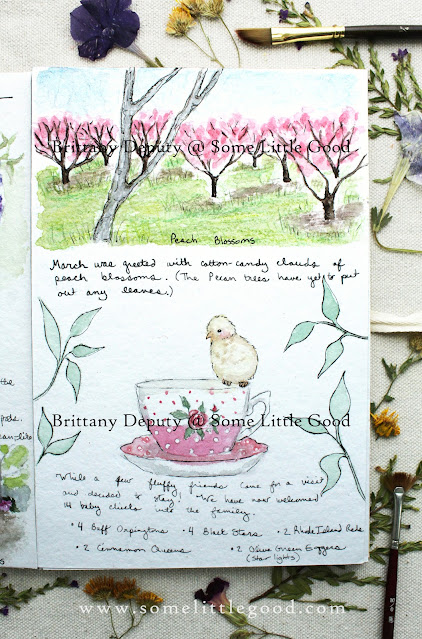 Brittany Deputy @ Some Little Good
Peach Blossoms
March was greeted with cotton-candy clouds of
peach blossoms. (The Pecan trees have yet to put
out any leaves.)
Brittany Deputy @ Some Little Good
the
While a few fluffy friends came for a visit
and decided to stay! We have now welcomed
14 baby chicks into the family.
• 4 Buff Orpingtons • 4 Black Stars • 2 Rhode Island Reds
• 2 Cinnamon Queens • 2 Olive Green Eggers
(Star lights)
www.somelittlegood.com